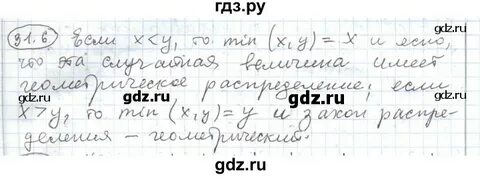 гдз.ру
31.6 Если x<y, то min (x,y) = x и ясно,
что эта случайная величина имеет
геометрическое распределение; если
x>y, то min (x,y) = y и закон распре-
деления – геометрический.
gdz.ru
gdz.ru
gdz.ru
gdz.ru